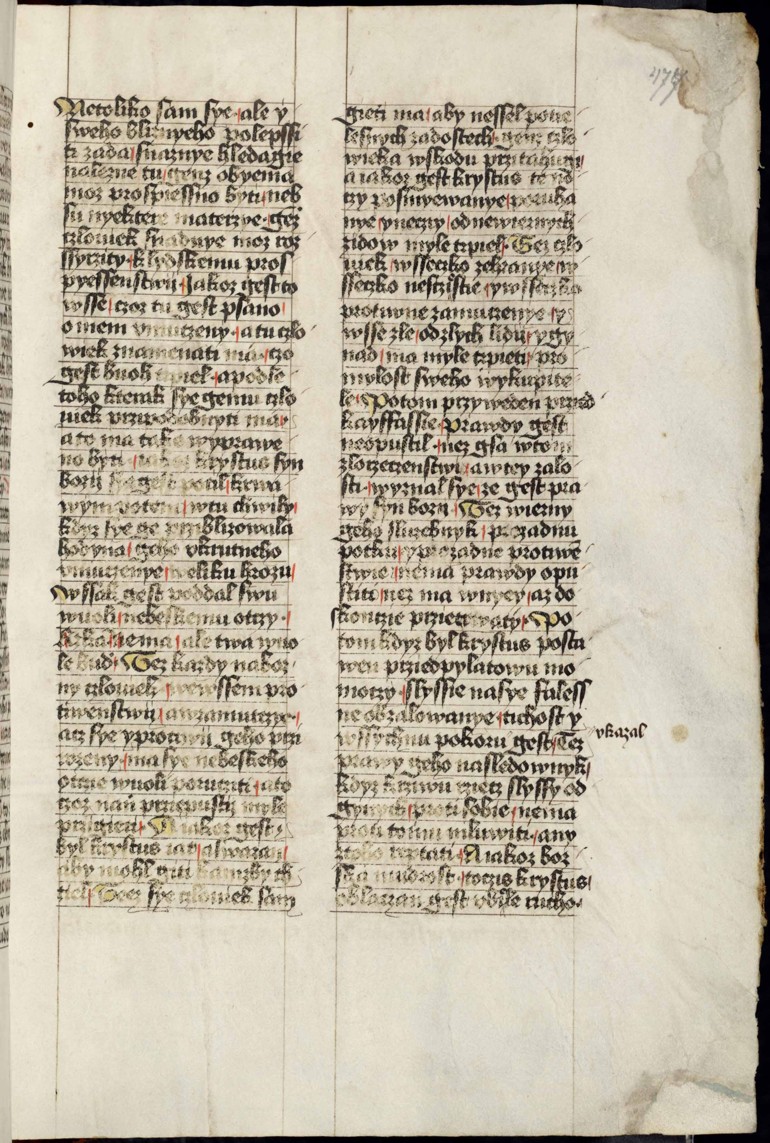 Netoliko sam sye ale y
sweho bliznyeho polepssi
ti zada snaznye hledagie
nalezne tu genz obyema
moz prospiessno byti neb
su nyektere materzye gez
czlowiek snadnye moz roz
ssyrzity k lydskemu pros
pyessenstwu Jakoz gest to
wsse czoz tu gest psano
o niem vmuczeny a tu czlo
wiek znamenati ma czo
gest buoh trpiel a podle
toho kterak sye gemu czlo
wiek przipodobnyti ma
a to ma take wyprawe
no byti iakoz krystus syn
bozy sye gest potil krwa
wym potem w tu chwily
kdyz sye ge przyblizowala
hodyna geho vkrutneho
vmuczenye weliku hrozu
Wssak gest poddal swu
wuoli nebeskemu otczy
Rzka nema ale twa wuo
le bud Tez kazdy naboz
ny czlowiek we wssem pro
tiwenstwu a w zamutczye
acz sye y protiwu geho przi
rozeny ma sye nebeskeho
otcze wuoli poruczyti a to
czoz nan przepusti myle
przigieti A iakoz gest
byl krystus iat a swazan
aby mohl gni kamzby ch
tiel Teez sye czlowiek sam
gieti ma aby nessel po tie
lesnych zadostech genz czlo
wieka w skodu przitahugi
a iakoz gest krystus te no
czy posmyewanye poruha
nye y neczty od newiernych
zidow myle trpiel Tez czlo
wiek wsseczko zehranye w
sseczko nesczistie y wsseczko
protiwne zamuczenye y
wsse zle od zlych lidu y gy
nad ma myle trpieti pro
mylost sweho wykupite
le Potom przyweden przed
kayffassie prawdy gest
neopustil nez gsa w tom
zlorzeczenstwi a w tey zalo
sti wyznal sye ze gest pra
wy syn bozy Tez wierny
geho sluzebnyk pro zadnu
potku y pro zadne protiwe
stwie nema prawdy opu
stiti nez ma w nyey az do
skonczie przietrwaty Po
tom kdyz byl krystus posta
wen przed pylatowu mo
moczy slyssie na sye faless
ne obzalowanye tichost y
wssychnu pokoru gest Tez
vkazal
prawy geho nasledownyk
kdyz krziwu rzecz slyssy od
gynych proti sobie nema
proti tomu mluwiti any
z toho reptati A iakoz boz
ska mudrost toczis krystus
oblaczan gest v biele rucho